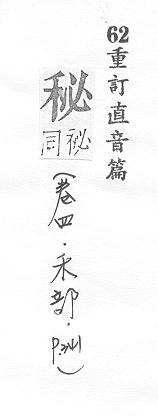 62重訂直音篇
秘
同祕
(卷四·禾部·P.341)